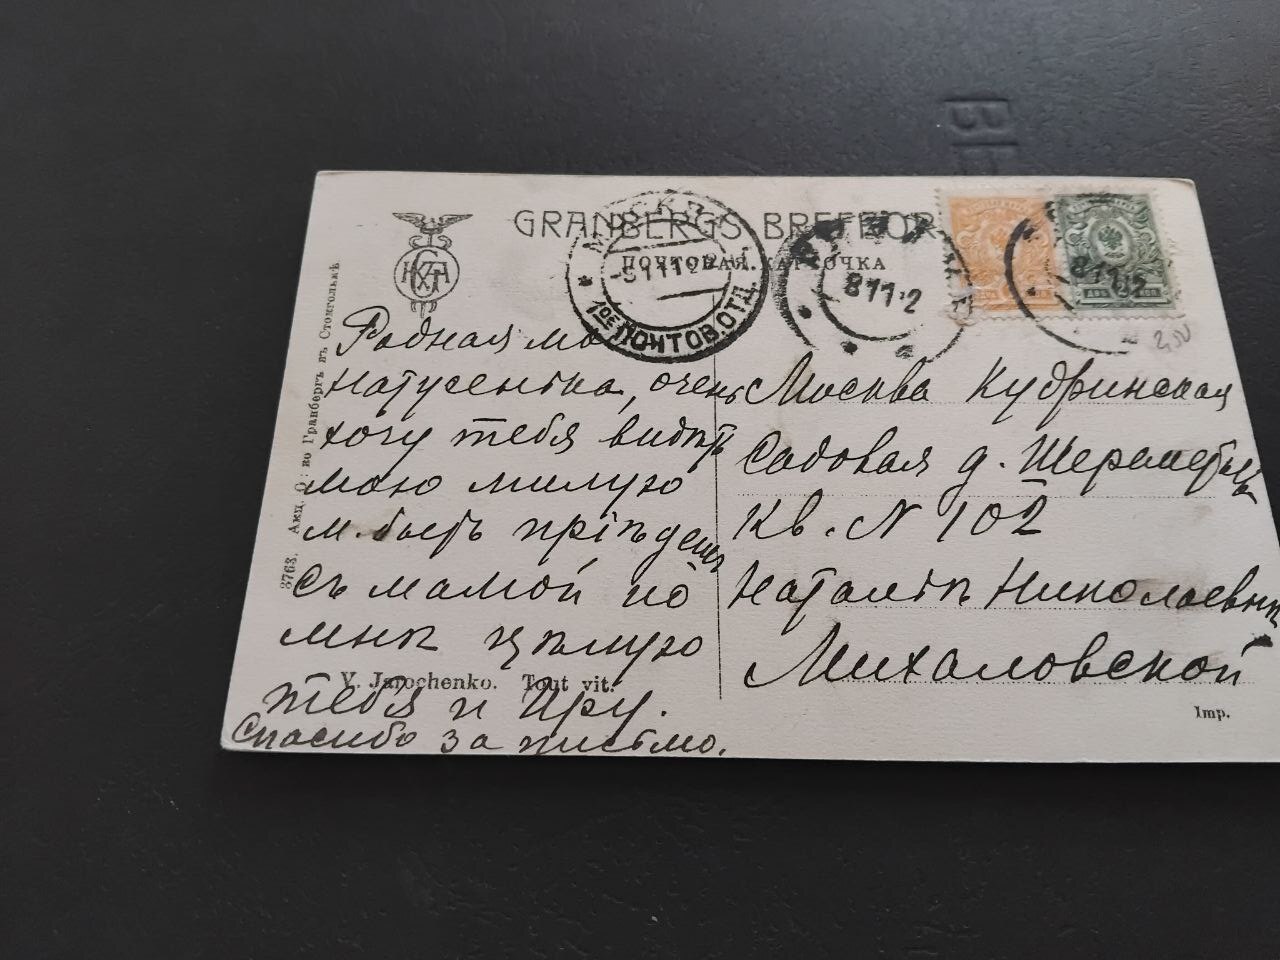 GRANBERGS BREFKORT
ПОЧТОВАЯ КАРТОЧКА
1ое ПОЧТОВ. ОТД.
-5 11 12
8 11 12
8 11 12
Родная моя
Натусенька, очень
хочу тебя видѣть
мою милую
м. быть пріѣдешь
съ мамой ко
мнѣ цѣлую
тебя и Иру.
Спасибо за письмо.
Москва Кудринская
Садовая д. Шереметьева
Кв. N 102
Наталіи Николаевнѣ
Михаловской
V. Jarochenko. Tout vit.
Imp.
3763. Акц. О-во Гранбергъ въ Стокгольмѣ